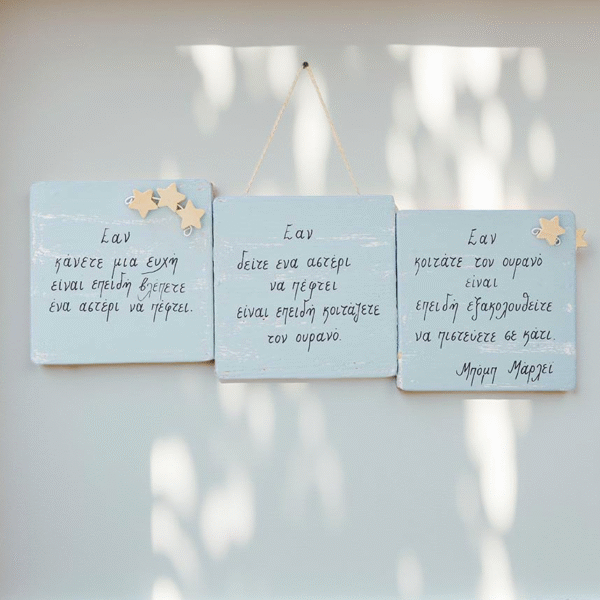 Εαν
κάνετε μια ευχή
είναι επειδή βλέπετε
ένα αστέρι νά πέφτει.
Εαν
δείτε ενα αστέρι
να πέφτει
είναι επειδή κοιτάζετε
τον ουρανό.
Εαν
κοιτάτε τον ουρανό
είναι
επειδή εξακολουθείτε
να πιστεύετε σε κάτι.
Μπόμπ Μάρλεϊ